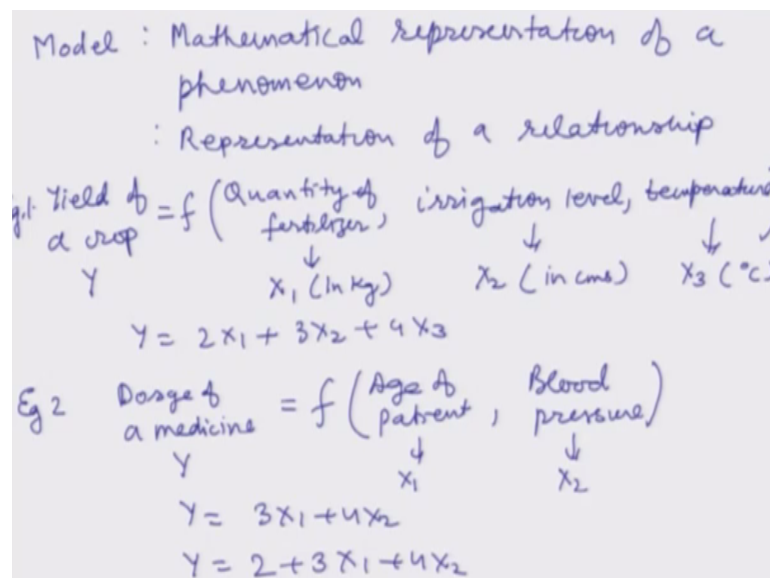 Model : Mathematical representation of a
phenomenon
: Representation of a relationship
g.1. Yield of a crop = f (Quantity of fertilizer, irrigation level, temperature
↓ ↓ ↓
Y X1 (in kg) X2 (in cms) X3 (°C)
Y = 2X1 + 3X2 + 4X3
Eg 2 Dosge of a medicine = f (Age of patient, Blood pressure)
↓ ↓
Y X1 X2
Y = 3X1 + 4X2
Y = 2 + 3X1 + 4X2